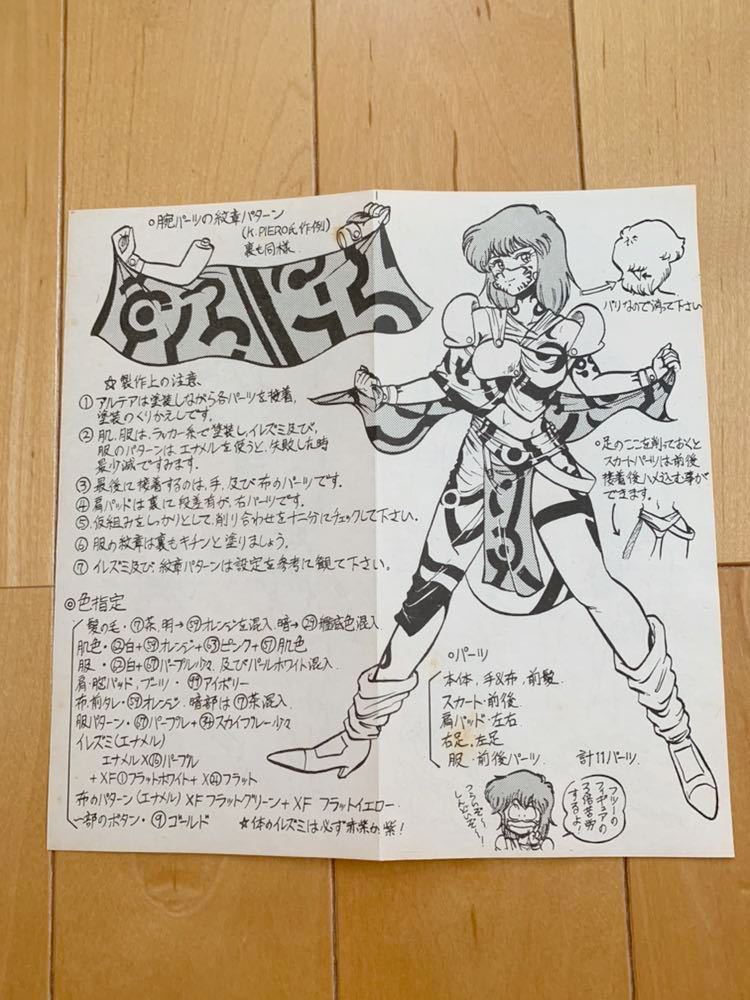 ○腕パーツの紋章パターン
(K.PIERO氏作例)
裏も同様.
バリなので消って下さい
☆製作上の注意、
①アルテアは塗装しながら各パーツを接着,
塗装のくりかえしです。
②肌,服は,ラッカー系で塗装し,イレズミ及び,
服のパターンは,エナメルを使うと,失敗した時
最少減ですみます.
③最後に接着するのは,手,及び布のパーツです。
④肩パッドは裏に段差有が,右パーツです。
⑤仮組みをしっかりとして,削り合わせを十二分にチェックして下さい。
⑥服の紋章は裏もキチンと塗りましょう。
⑦イレズミ及び,紋章パターンは設定を参考に観て下さい。
○足のここを削っておくと
スカートパーツは前後
接着後ハメ込む事が
できます。
◎色指定
髪の毛・⑦茶,明→㊾オレンジを混入,暗→㉙艦底色混入
肌色・62白+59オレンジ+63ピンク+51肌色
服・62白+67パープル少々,及びパールホワイト混入.
肩,腕パッド,ブーツ・㊹アイボリー
布,前タレ・59オレンジ,暗部は⑦茶混入.
服パターン・67パープル+34スカイブルー少々
イレズミ(エナメル)
エナメルX⑯パープル
+XF①フラットホワイト+X㉑フラット
布のパターン(エナメル)XFフラットグリーン+XF フラットイエロー.
一部のボタン・⑨ゴールド
☆体のイレズミは必ず赤紫か紫!
○パーツ
本体,手&布,前髪.
スカート・前後
肩パッド・左右
右足,左足
服・前後パーツ.
計11パーツ.
つらいぞ〜
しんどいぞ〜!
フツーの
フィギュアの
3倍苦労
するよ!